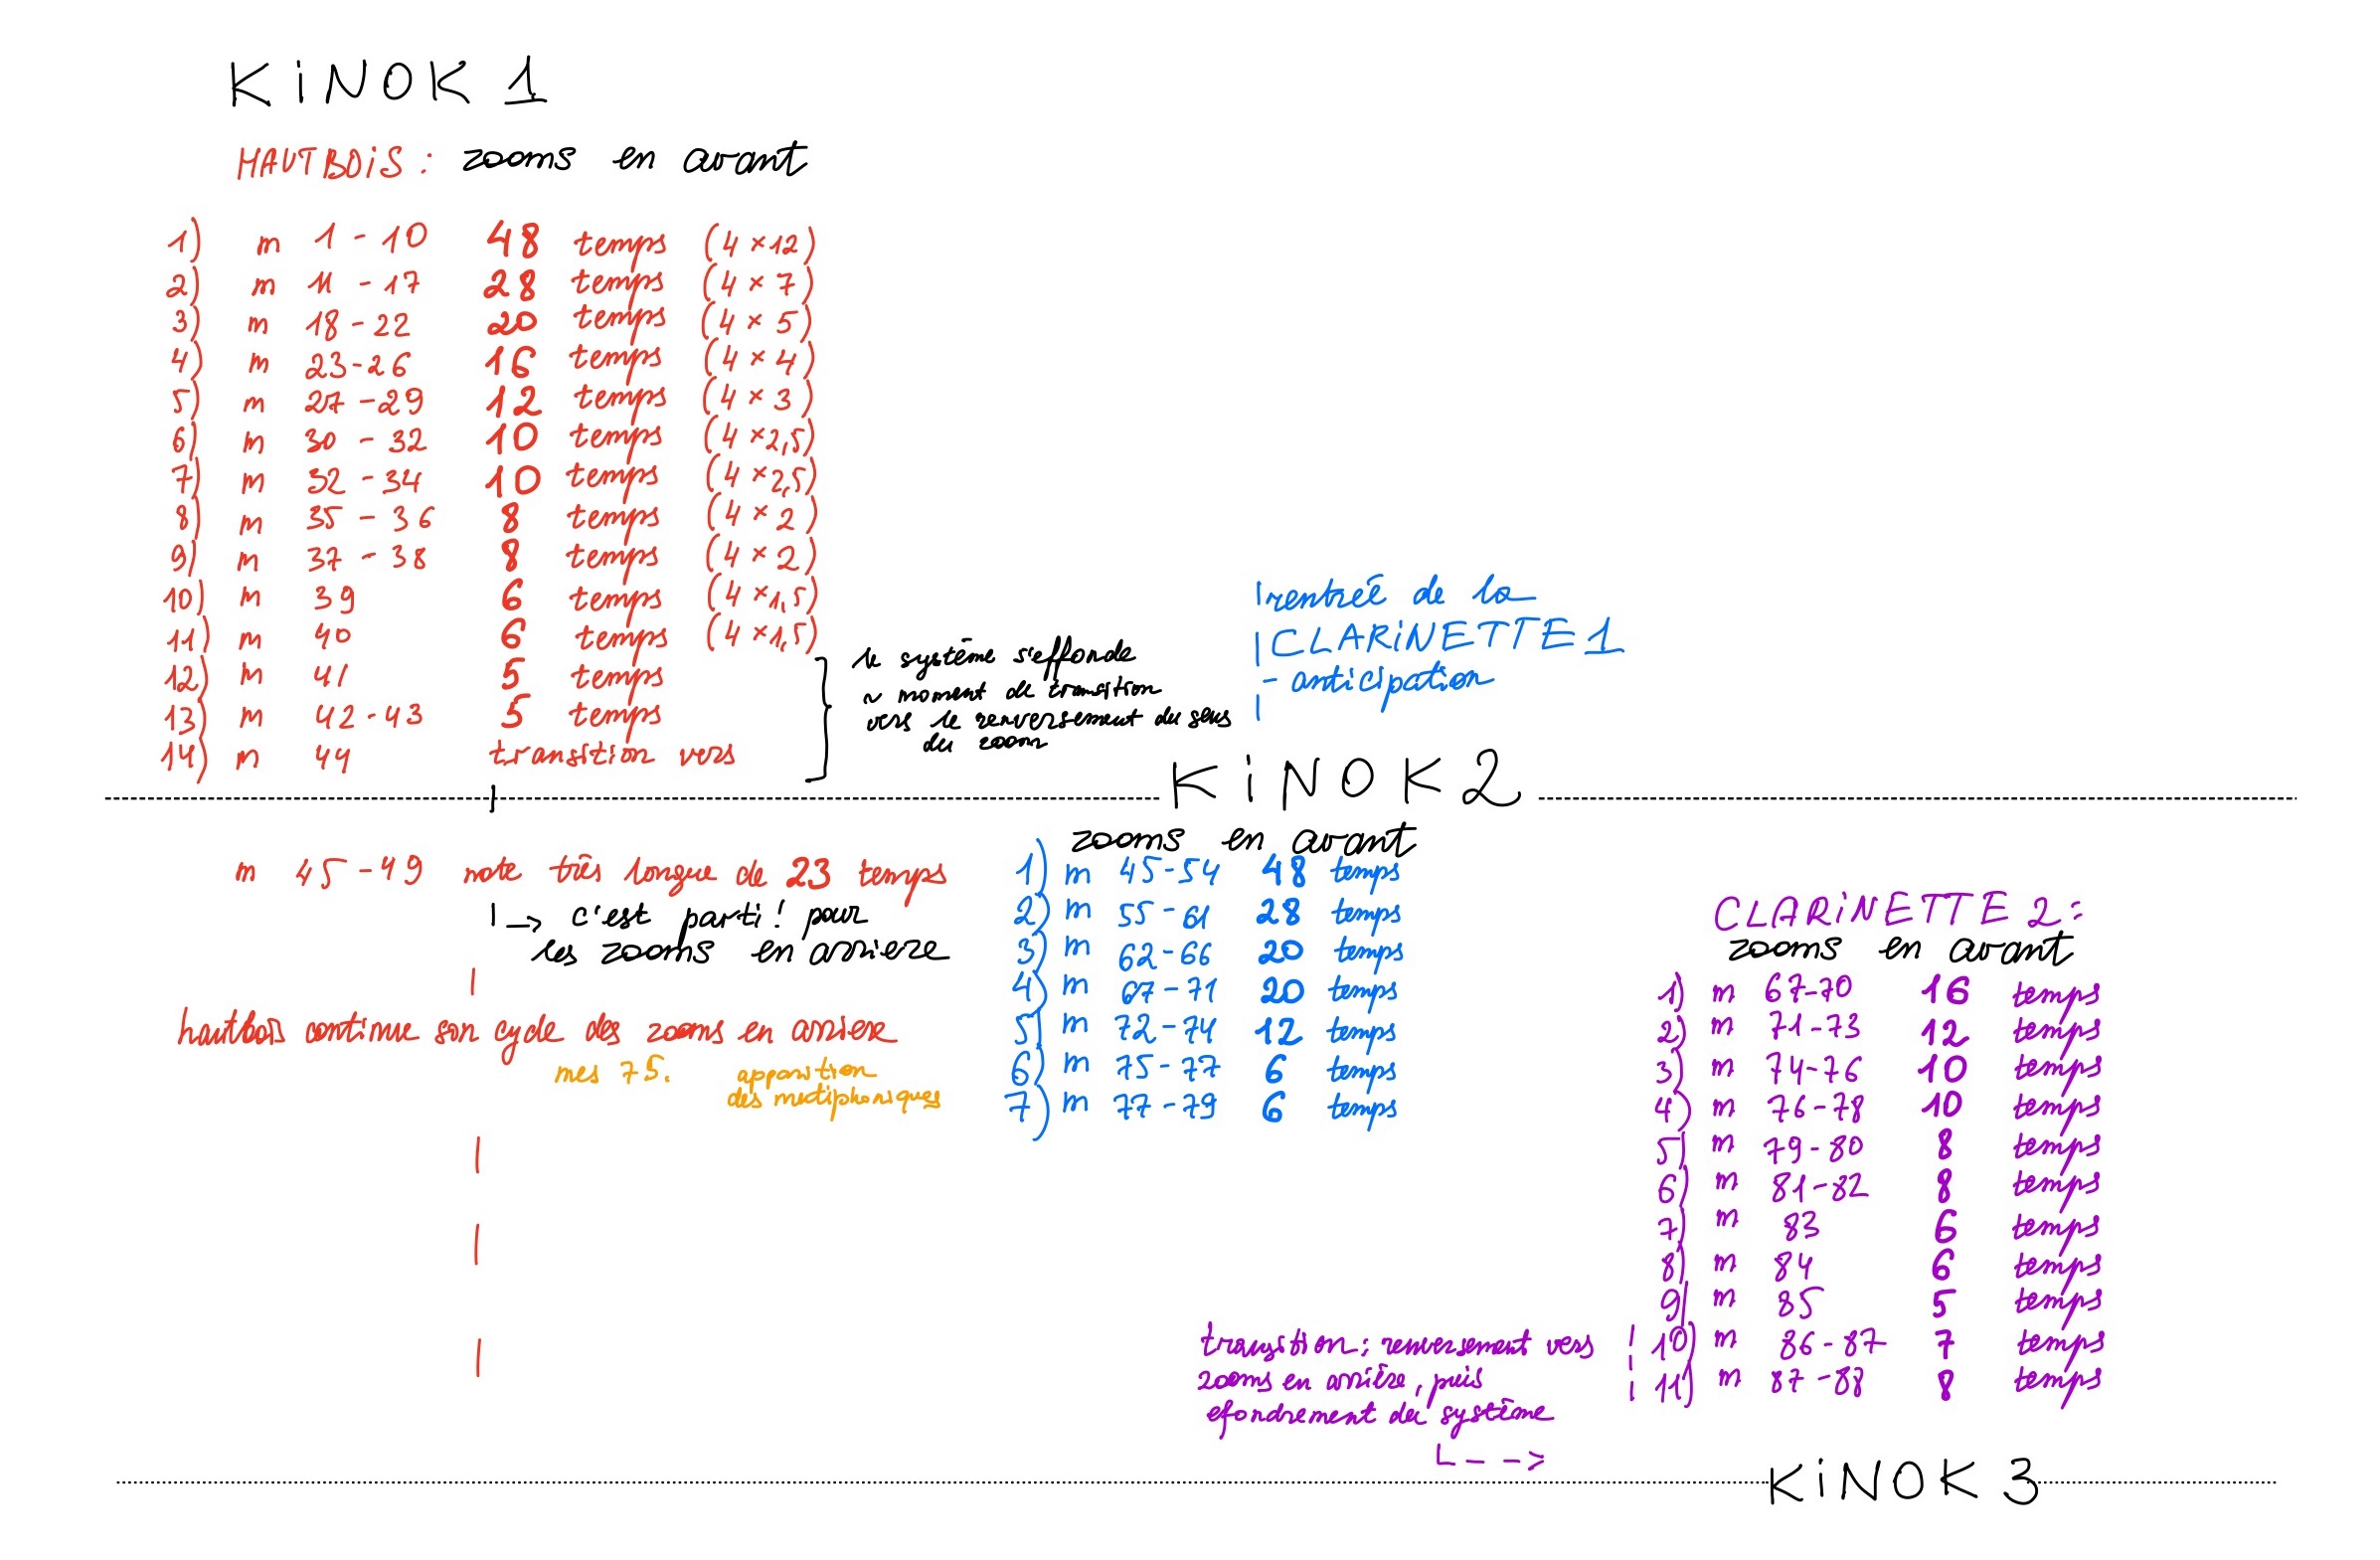 KiNOK 1
HAUTBOiS : zooms en avant
1) m 1 - 10 48 temps (4 × 12)
2) m 11 - 17 28 temps (4 × 7)
3) m 18 - 22 20 temps (4 × 5)
4) m 23 - 26 16 temps (4 × 4)
5) m 27 - 29 12 temps (4 × 3)
6) m 30 - 32 10 temps (4 × 2,5)
7) m 32 - 34 10 temps (4 × 2,5)
8) m 35 - 36 8 temps (4 × 2)
9) m 37 - 38 8 temps (4 × 2)
10) m 39 6 temps (4 × 1,5)
11) m 40 6 temps (4 × 1,5)
12) m 41 5 temps
13) m 42 - 43 5 temps
14) m 44 transition vers
le système s'effonde
~ moment de transition
vers le renversement du sens
du zoom
rentrée de la
CLARiNETTE 1
- anticipation
KiNOK 2
m 45 - 49 note très longue de 23 temps
→ c'est parti ! pour
les zooms en arriere
hautbois continue son cycle des zooms en arriere
mes 75. apparition
des multiphoniques
zooms en avant
1) m 45 - 54 48 temps
2) m 55 - 61 28 temps
3) m 62 - 66 20 temps
4) m 67 - 71 20 temps
5) m 72 - 74 12 temps
6) m 75 - 77 6 temps
7) m 77 - 79 6 temps
CLARiNETTE 2 :
zooms en avant
1) m 67 - 70 16 temps
2) m 71 - 73 12 temps
3) m 74 - 76 10 temps
4) m 76 - 78 10 temps
5) m 79 - 80 8 temps
6) m 81 - 82 8 temps
7) m 83 6 temps
8) m 84 6 temps
9) m 85 5 temps
10) m 86 - 87 7 temps
11) m 87 - 88 8 temps
transition : renversement vers
zooms en arrière, puis
efondrement du système
KiNOK 3